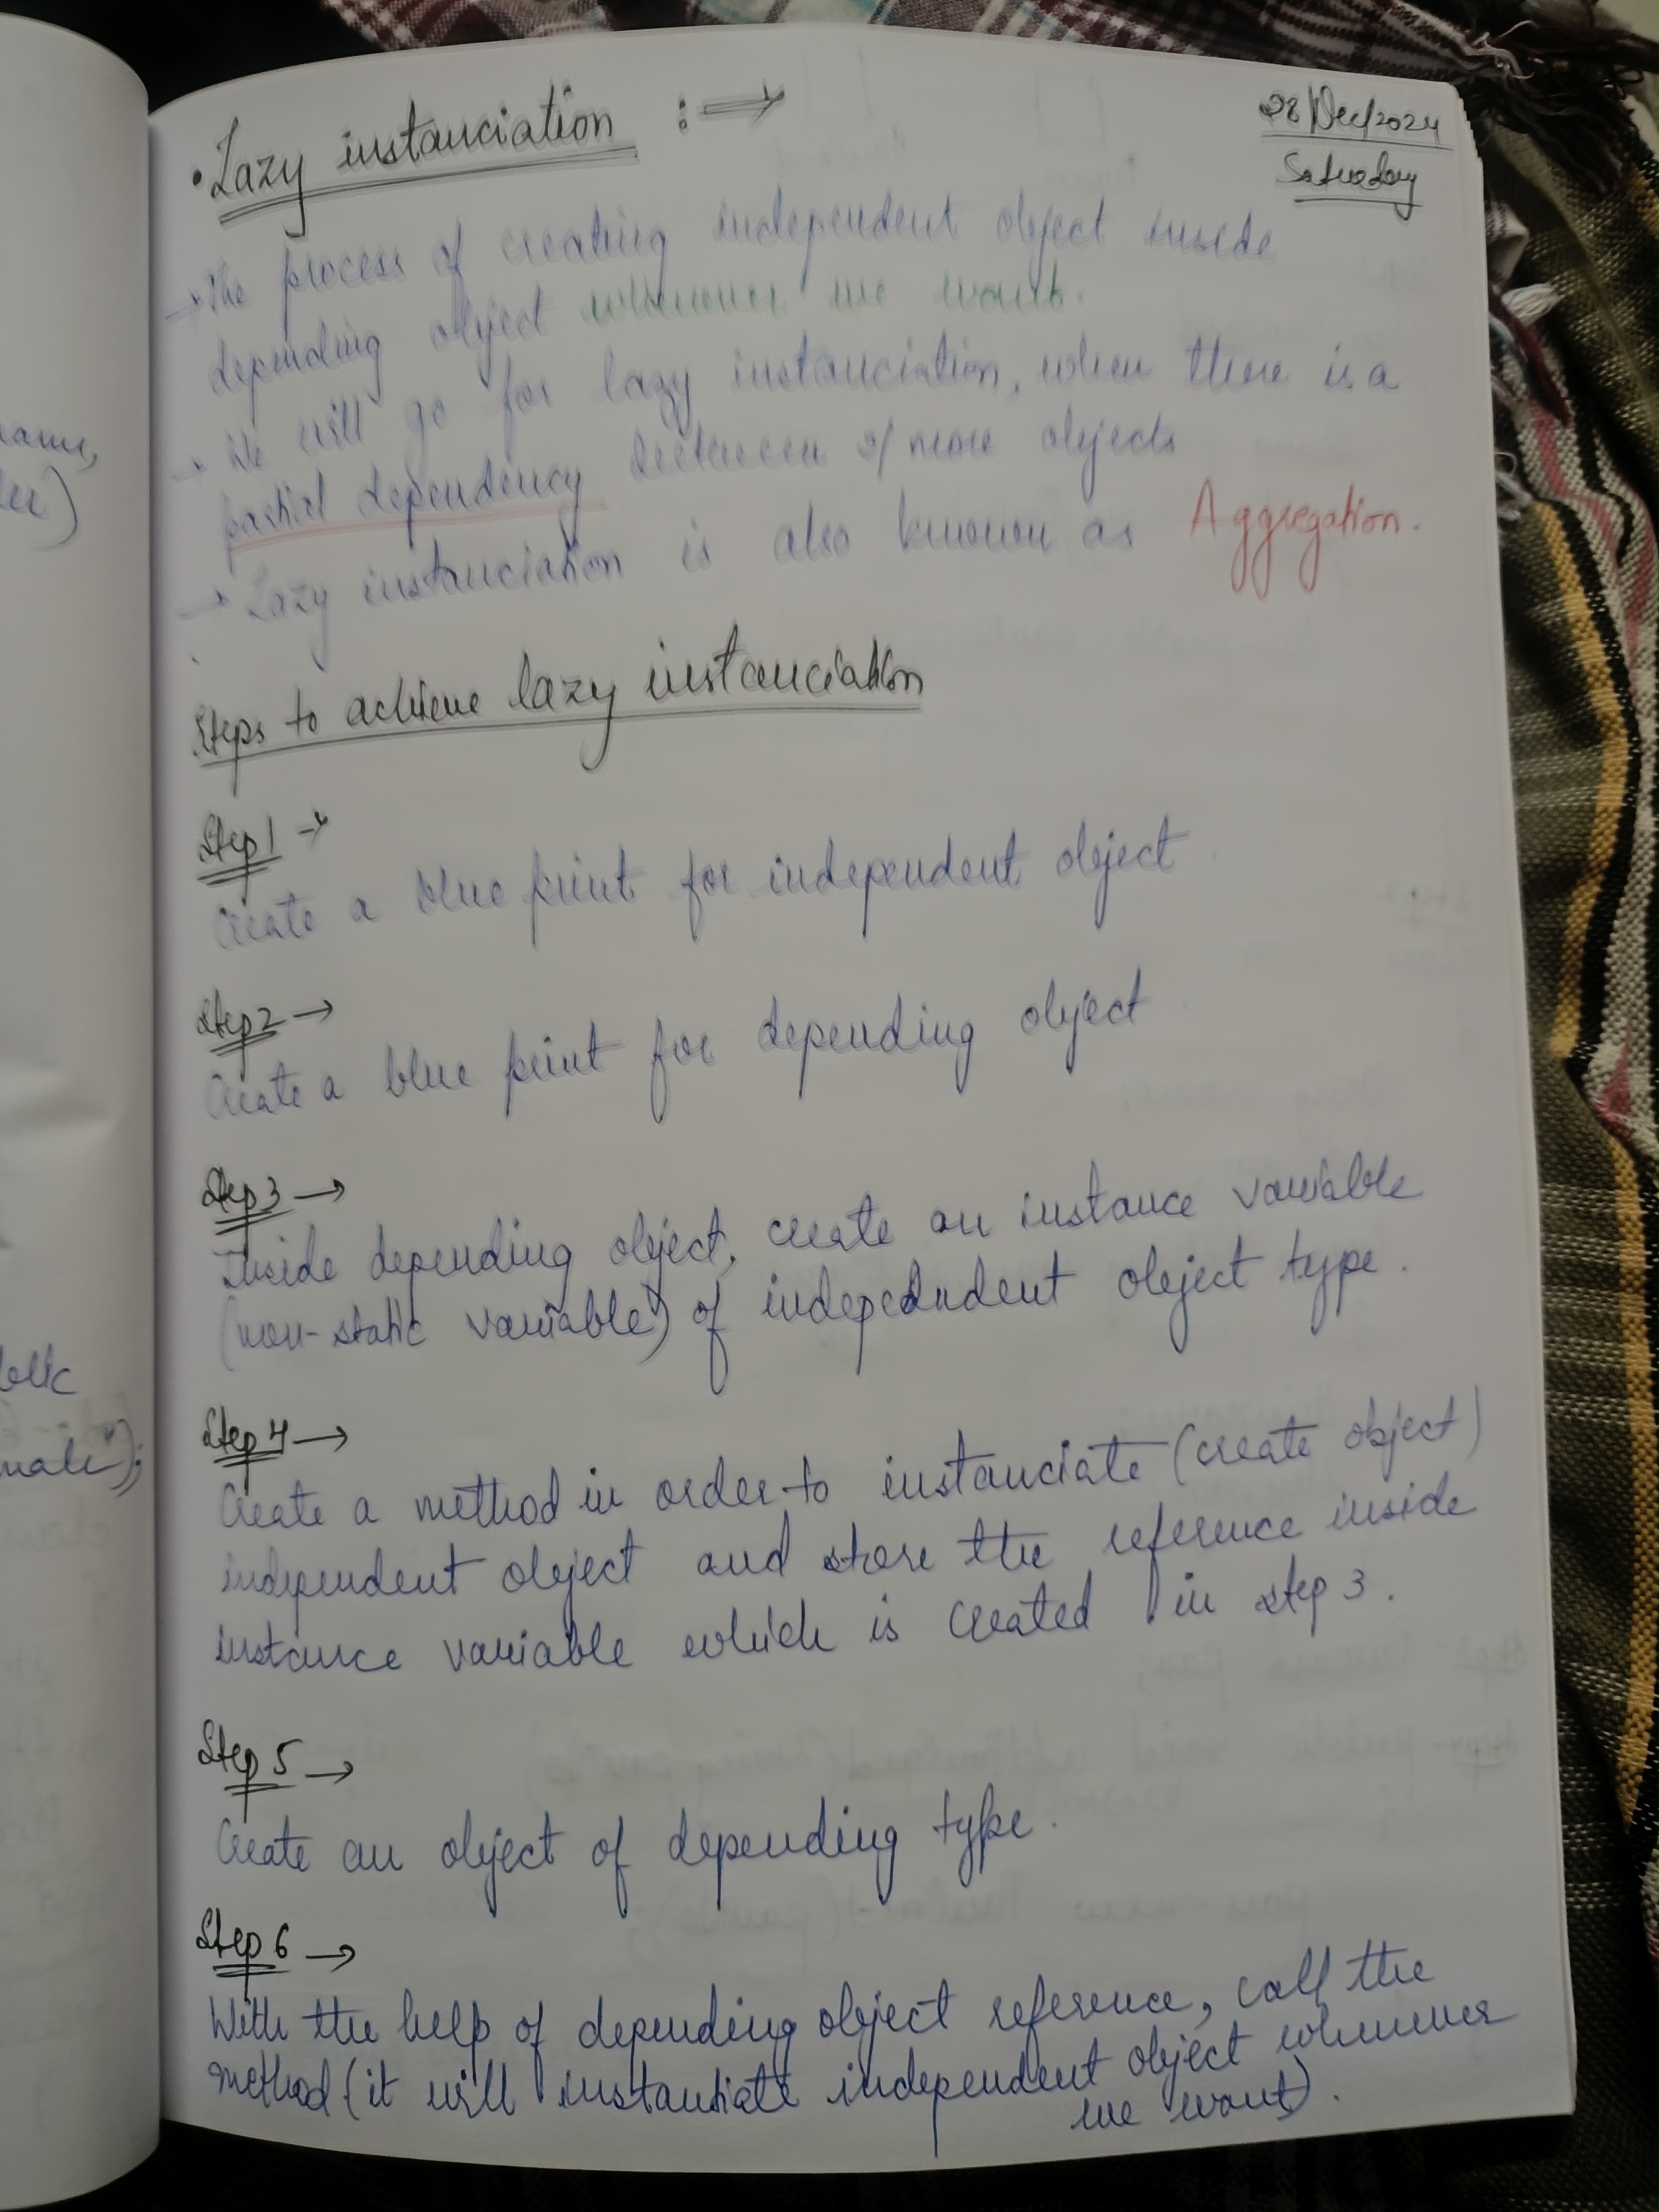 28/Dec/2024
Saturday
• Lazy instanciation :⇒
→ The process of creating independent object inside
depending object whenever we want.
→ We will go for lazy instanciation, when there is a
partial dependency between 2/more objects
→ Lazy instanciation is also known as Aggregation.
Steps to achieve lazy instanciation
Step 1 →
Create a blue print for independent object
Step 2 →
Create a blue print for depending object
Step 3 →
Inside depending object, create an instance variable
(non-static variable) of independent object type.
Step 4 →
Create a method in order to instanciate (create object)
independent object and store the reference inside
instance variable which is created in step 3.
Step 5 →
Create an object of depending type.
Step 6 →
With the help of depending object reference, call the
method (it will instantiate independent object whenever
we want).